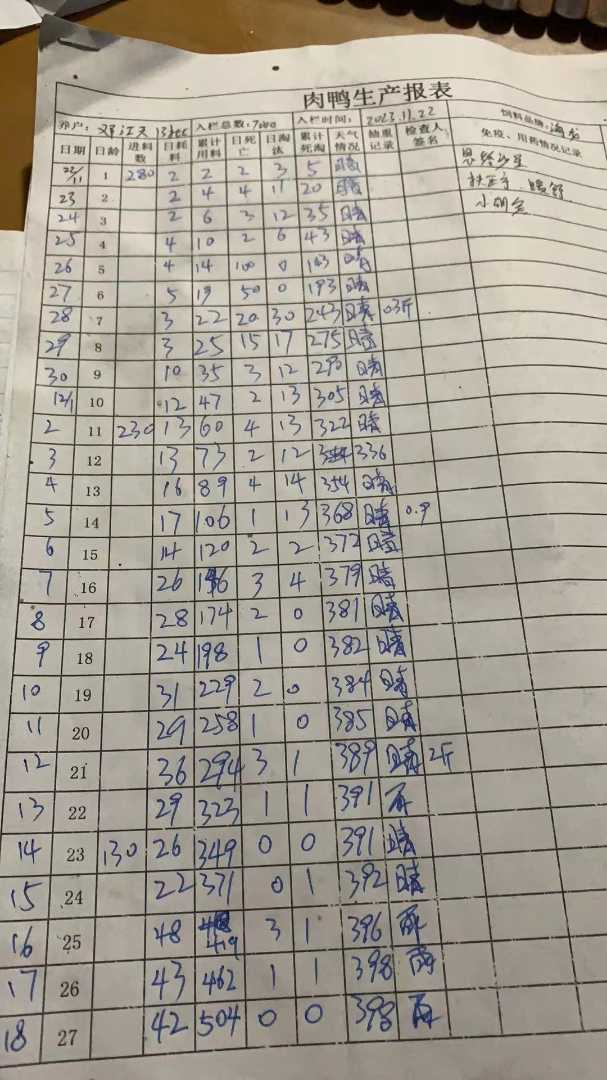 肉鸭生产报表
养户: 邓江义 入栏总数:7000 入栏时间: 2023.11.22 饲料品牌:
日期 日龄 进料数 日耗料 累计用料 日死亡 日淘汰 累计死淘 天气情况 抽重记录 检查人签名 免疫、用药情况记录
22/11 1 280 2 2 2 3 5 晴 恩诺沙星
23 2 2 4 4 11 20 晴
24 3 2 6 3 12 35 晴
25 4 4 10 2 6 43 晴
26 5 4 14 100 0 143 晴
27 6 5 19 50 0 193 晴
28 7 3 22 20 30 243 晴 0.3斤
29 8 3 25 15 17 275 晴
30 9 10 35 3 12 290 晴
12/1 10 12 47 2 13 305 晴
2 11 230 13 60 4 13 322 晴
3 12 13 73 2 12 336
4 13 16 89 4 14 354 晴
5 14 17 106 1 13 368 晴 0.9
6 15 14 120 2 2 372 晴
7 16 26 146 3 4 379 晴
8 17 28 174 2 0 381 晴
9 18 24 198 1 0 382 晴
10 19 31 229 2 0 384 晴
11 20 29 258 1 0 385 晴
12 21 36 294 3 1 389 晴 2斤
13 22 29 323 1 1 391 雨
14 23 130 26 349 0 0 391 晴
15 24 22 371 0 1 392 晴
16 25 48 419 3 1 396 雨
17 26 43 462 1 1 398 雨
18 27 42 504 0 0 398 雨